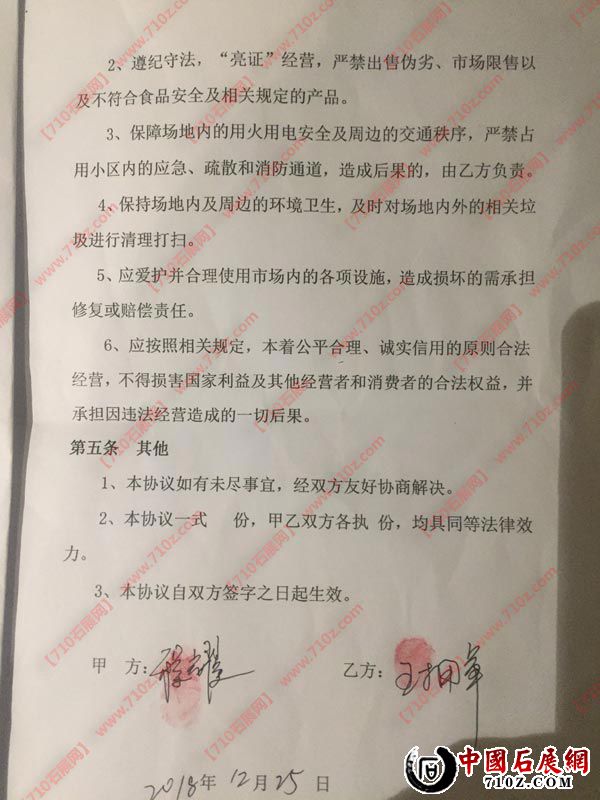 2、遵纪守法，“亮证”经营，严禁出售伪劣、市场限售以
及不符合食品安全及相关规定的产品。
3、保障场地内的用火用电安全及周边的交通秩序，严禁占
用小区内的应急、疏散和消防通道，造成后果的，由乙方负责。
4、保持场地内及周边的环境卫生，及时对场地内外的相关垃
圾进行清理打扫。
5、应爱护并合理使用市场内的各项设施，造成损坏的需承担
修复或赔偿责任。
6、应按照相关规定，本着公平合理、诚实信用的原则合法
经营，不得损害国家利益及其他经营者和消费者的合法权益，并
承担因违法经营造成的一切后果。
第五条 其他
1、本协议如有未尽事宜，经双方友好协商解决。
2、本协议一式 份，甲乙双方各执 份，均具同等法律效
力。
3、本协议自双方签字之日起生效。
甲 方：
乙方：王拥军
2018年 12月 25 日
【710石展网】www.710z.com
中國石展網
710Z.COM